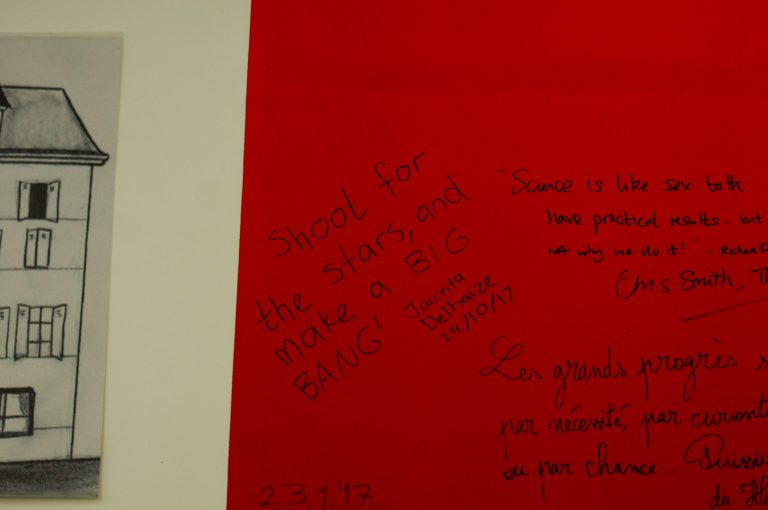 Shoot for
the stars, and
make a BIG
BANG!
Jacinta
Delhaize
24/10/17
"Science is like sex. both
have practical results - but
not why we do it!" - Richard
Chris Smith,
Les grands progrès
par nécessité, par curiosité
ou par chance.
do
23.1.'17.